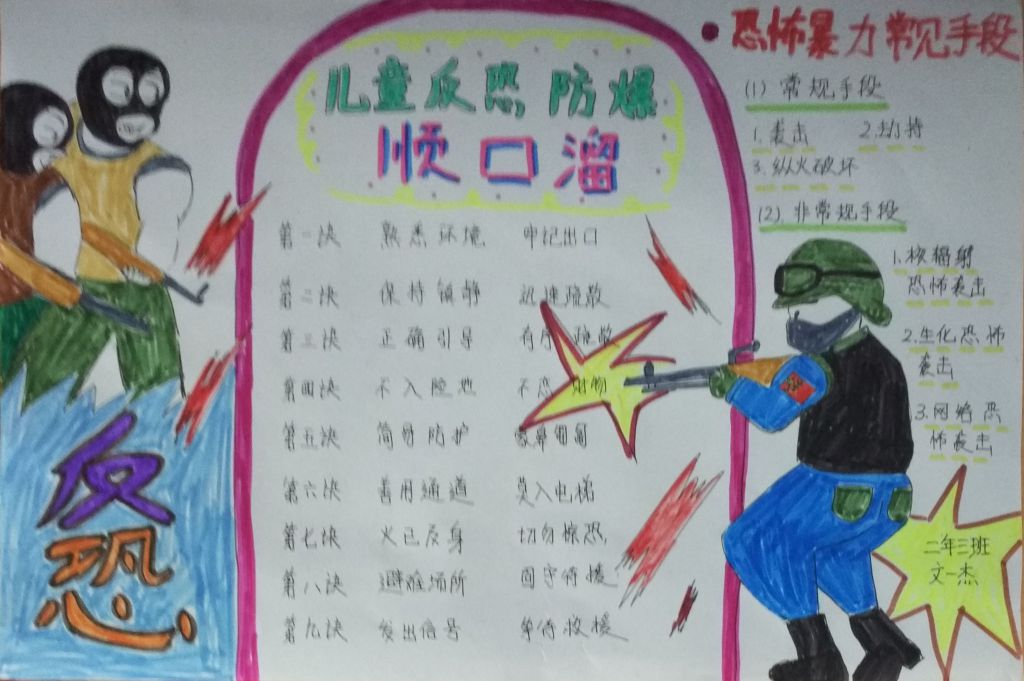 儿童反恐防爆
顺口溜
第一决 熟悉环境 牢记出口
第二决 保持镇静 迅速疏散
第三决 正确引导 有序疏散
第四决 不入险地 不恋财物
第五决 简易防护
第六决 善用通道 莫入电梯
第七决 火已及身 切勿惊恐
第八决 避险场所 固守待援
第九决 发出信号 等待救援
恐怖暴力常见手段
(1) 常规手段
1.袭击 2.劫持
3.纵火破坏
(2).非常规手段
1.核辐射
恐怖袭击
2.生化恐怖
袭击
3.网络恐
怖袭击
反
恐
二年三班
文一杰